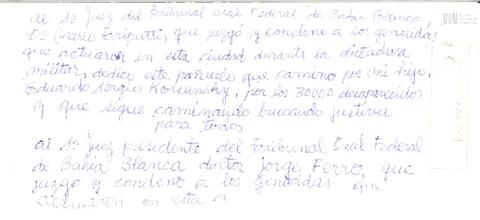 al Sr Juez del Tribunal Oral Federal de Bahía Blanca,
Dr Mario Triputti, que juzgó y condenó a los genocidas
que actuaron en esta ciudad durante la dictadura
militar, dedico este pañuelo que caminó por mi hijo,
Eduardo Sergio por los 30000 desaparecidos
y que sigue caminando buscando justicia
para todos
al Sr Juez presidente del Tribunal Oral Federal
de Bahía Blanca doctor Jorge Ferro, que
juzgó y condenó a los genocidas que
actuaron en esta c